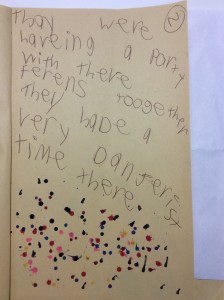 2
thay were
waveing a party
with there
ferens tooge ther
they hade a
very Danferis
time there st